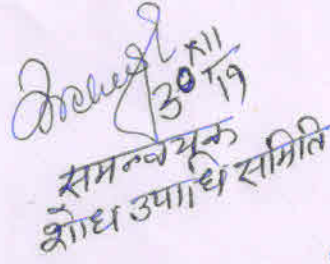 30 XII 19
समन्वयक
शोध उपाधि समिति